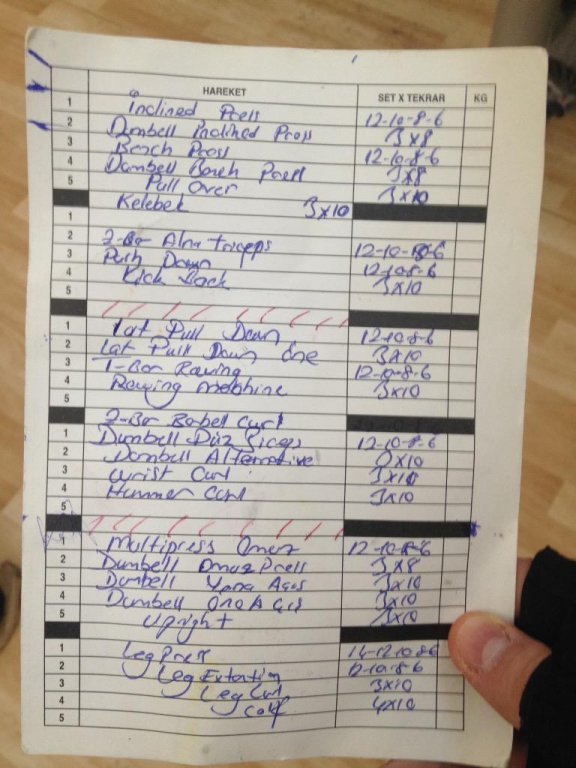 HAREKET SET X TEKRAR KG
1 İnclined Press 12-10-8-6
2 Dumbell İnclined Press 3x8
3 Bench Press 12-10-8-6
4 Dumbell Bench Press 3x8
5 Pull Over 3x10
Kelebek 3x10
1
2 Z-Bar Alna triceps 12-10-8-6
3 Push Down 12-10-8-6
4 Kick Back 3x10
5
1 Lat Pull Down 12-10-8-6
2 Lat Pull Down Öne 3x10
3 T-Bar Rowing 12-10-8-6
4 Rowing machine 3x10
5
Z-Bar Babell Curl
1 Dumbell Düz Biceps 12-10-8-6
2 Dumbell Alternative 3x10
3 Wrist Curl 3x10
4 Hammer Curl 3x10
5
1 Multipress Omuz 12-10-8-6
2 Dumbell Omuz Press 3x8
3 Dumbell Yana Açış 3x10
4 Dumbell Öne Açış 3x10
5 Upright 3x10
1 Leg Press 14-12-10-8-6
2 Leg Extention 12-10-8-6
3 Leg Curl 3x10
4 Calf 4x10
5